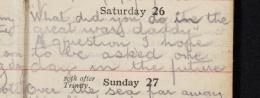 Saturday 26
What did you do in the
great war daddy
A question I hope
to be asked one
day in the future
20th after Trinity. Sunday 27
Over the sea far away